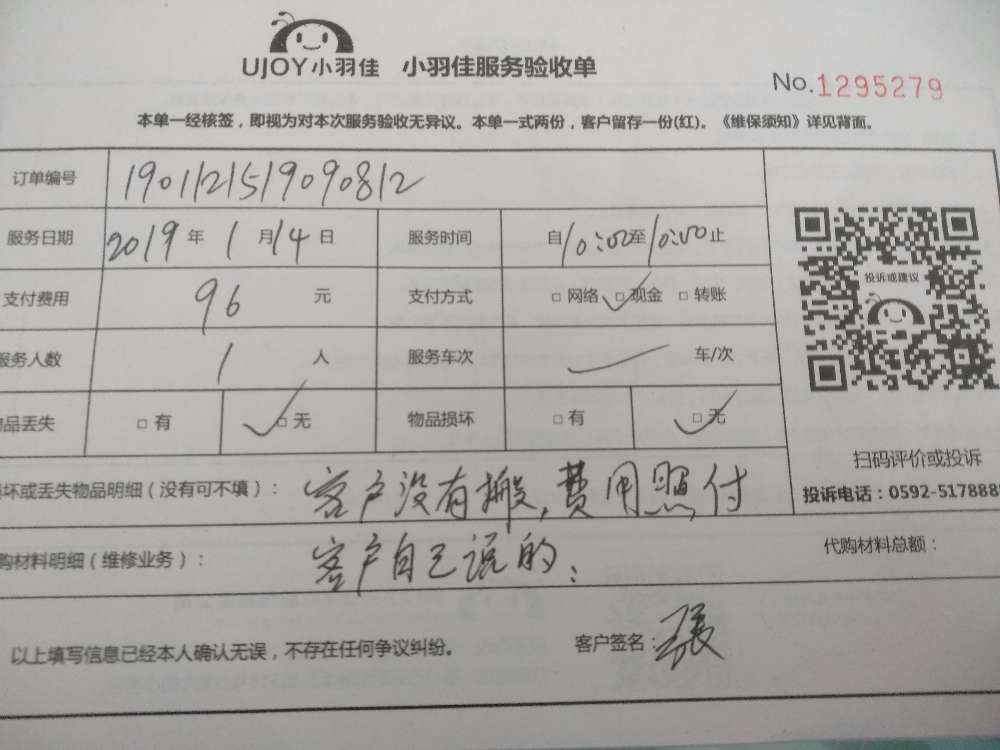 UJOY小羽佳 小羽佳服务验收单
No.1295279
本单一经核签，即视为对本次服务验收无异议。本单一式两份，客户留存一份(红)。《维保须知》详见背面。
订单编号 1901121519090812
服务日期 2019年1月14日 服务时间 自10:00至10:00止
支付费用 96元 支付方式 □网络 □现金 □转账
投诉或建议
服务人数 1人 服务车次 车/次
品丢失 □有 □无 物品损坏 □有 □无
扫码评价或投诉
坏或丢失物品明细（没有可不填）： 客户没有搬,费用照付
投诉电话：0592-517888
购材料明细（维修业务）： 客户自己说的; 代购材料总额：
以上填写信息已经本人确认无误，不存在任何争议纠纷。 客户签名：张